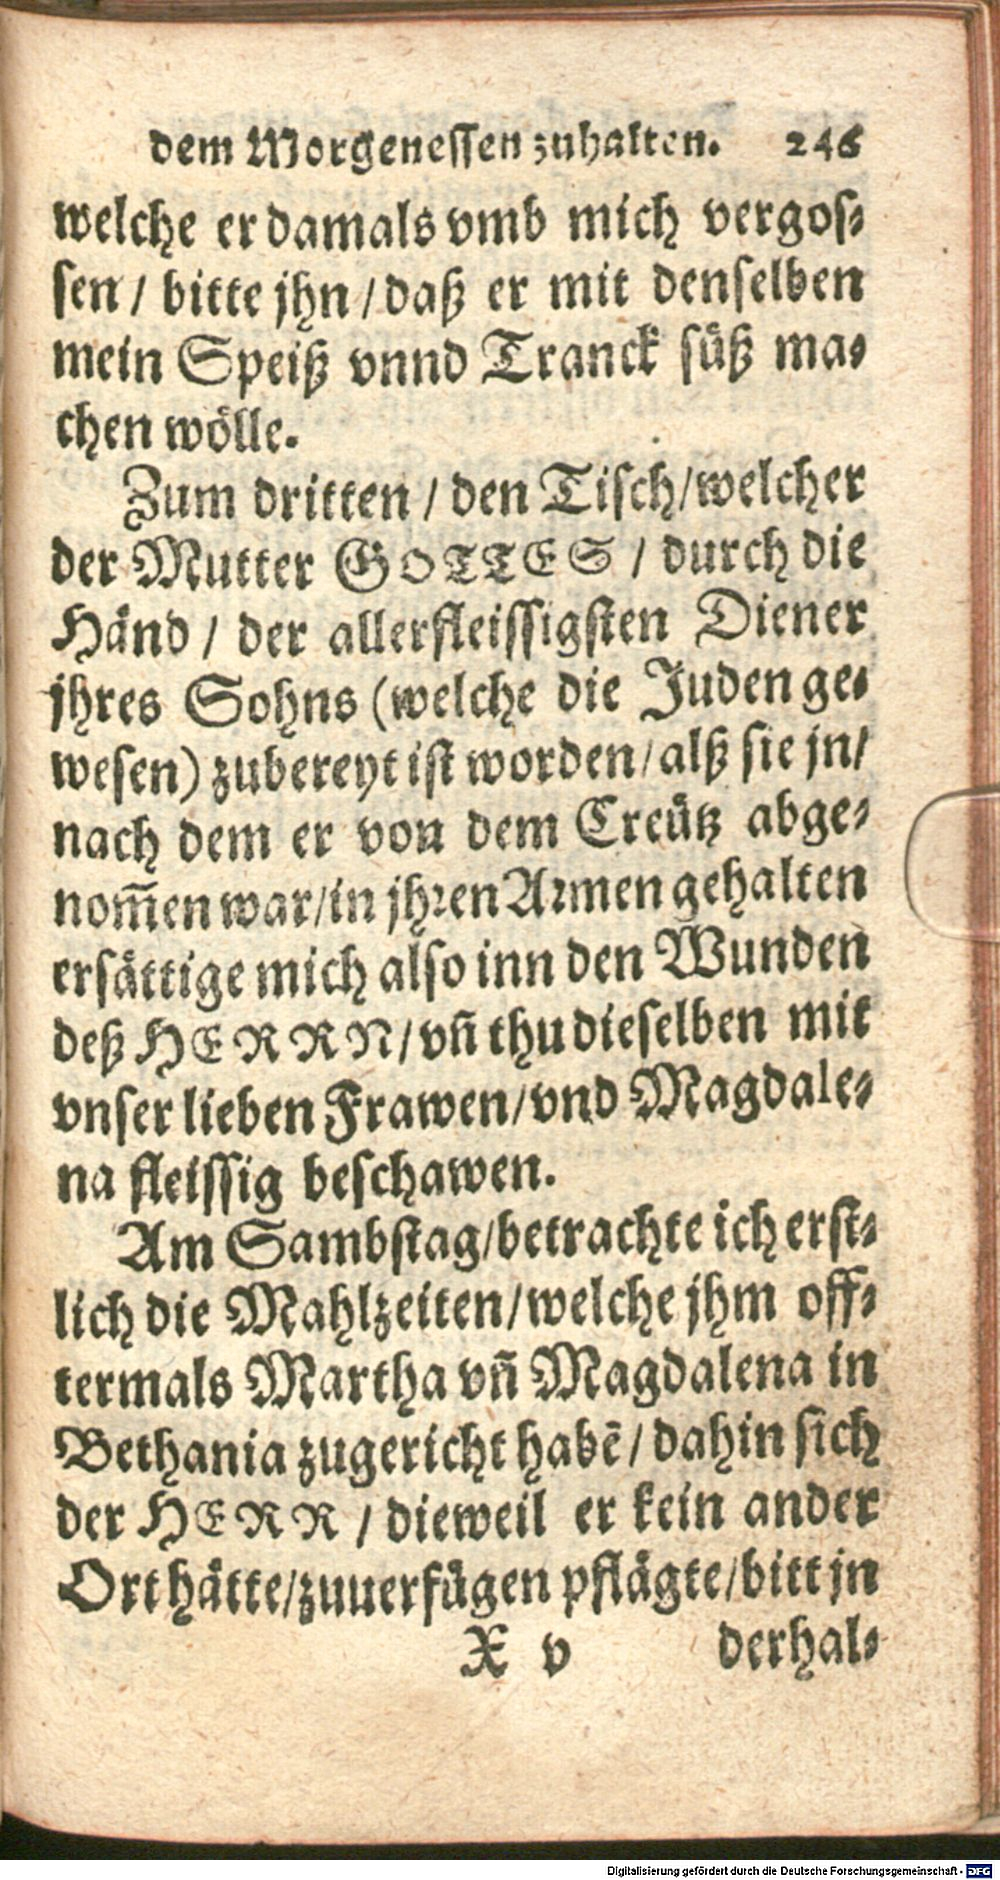 dem Morgenessen zuhalten. 246
welche er damals vmb mich vergos⸗
sen / bitte jhn / daß er mit denselben
mein Speiß vnnd Tranck süß ma⸗
chen wölle.
Zum dritten / den Tisch/welcher
der Mutter GOTTES / durch die
Händ / der allerfleissigsten Diener
jhres Sohns (welche die Juden ge⸗
wesen) zubereyt ist worden/ alß sie jn/
nach dem er von dem Creütz abge⸗
nom̄en war/in jhren Armen gehalten
ersättige mich also inn den Wunden
deß HERRN/ vn̄ thu dieselben mit
vnser lieben Frawen/vnd Magdale⸗
na fleissig beschawen.
Am Sambstag/betrachte ich erst⸗
lich die Mahlzeiten/welche jhm off⸗
termals Martha vn̄ Magdalena in
Bethania zugericht habē/ dahin sich
der HERR / dieweil er kein ander
Ort hätte/zuuerfügen pflägte/bitt jn
X v derhal⸗
Digitalisierung gefördert durch die Deutsche Forschungsgemeinschaft - DFG